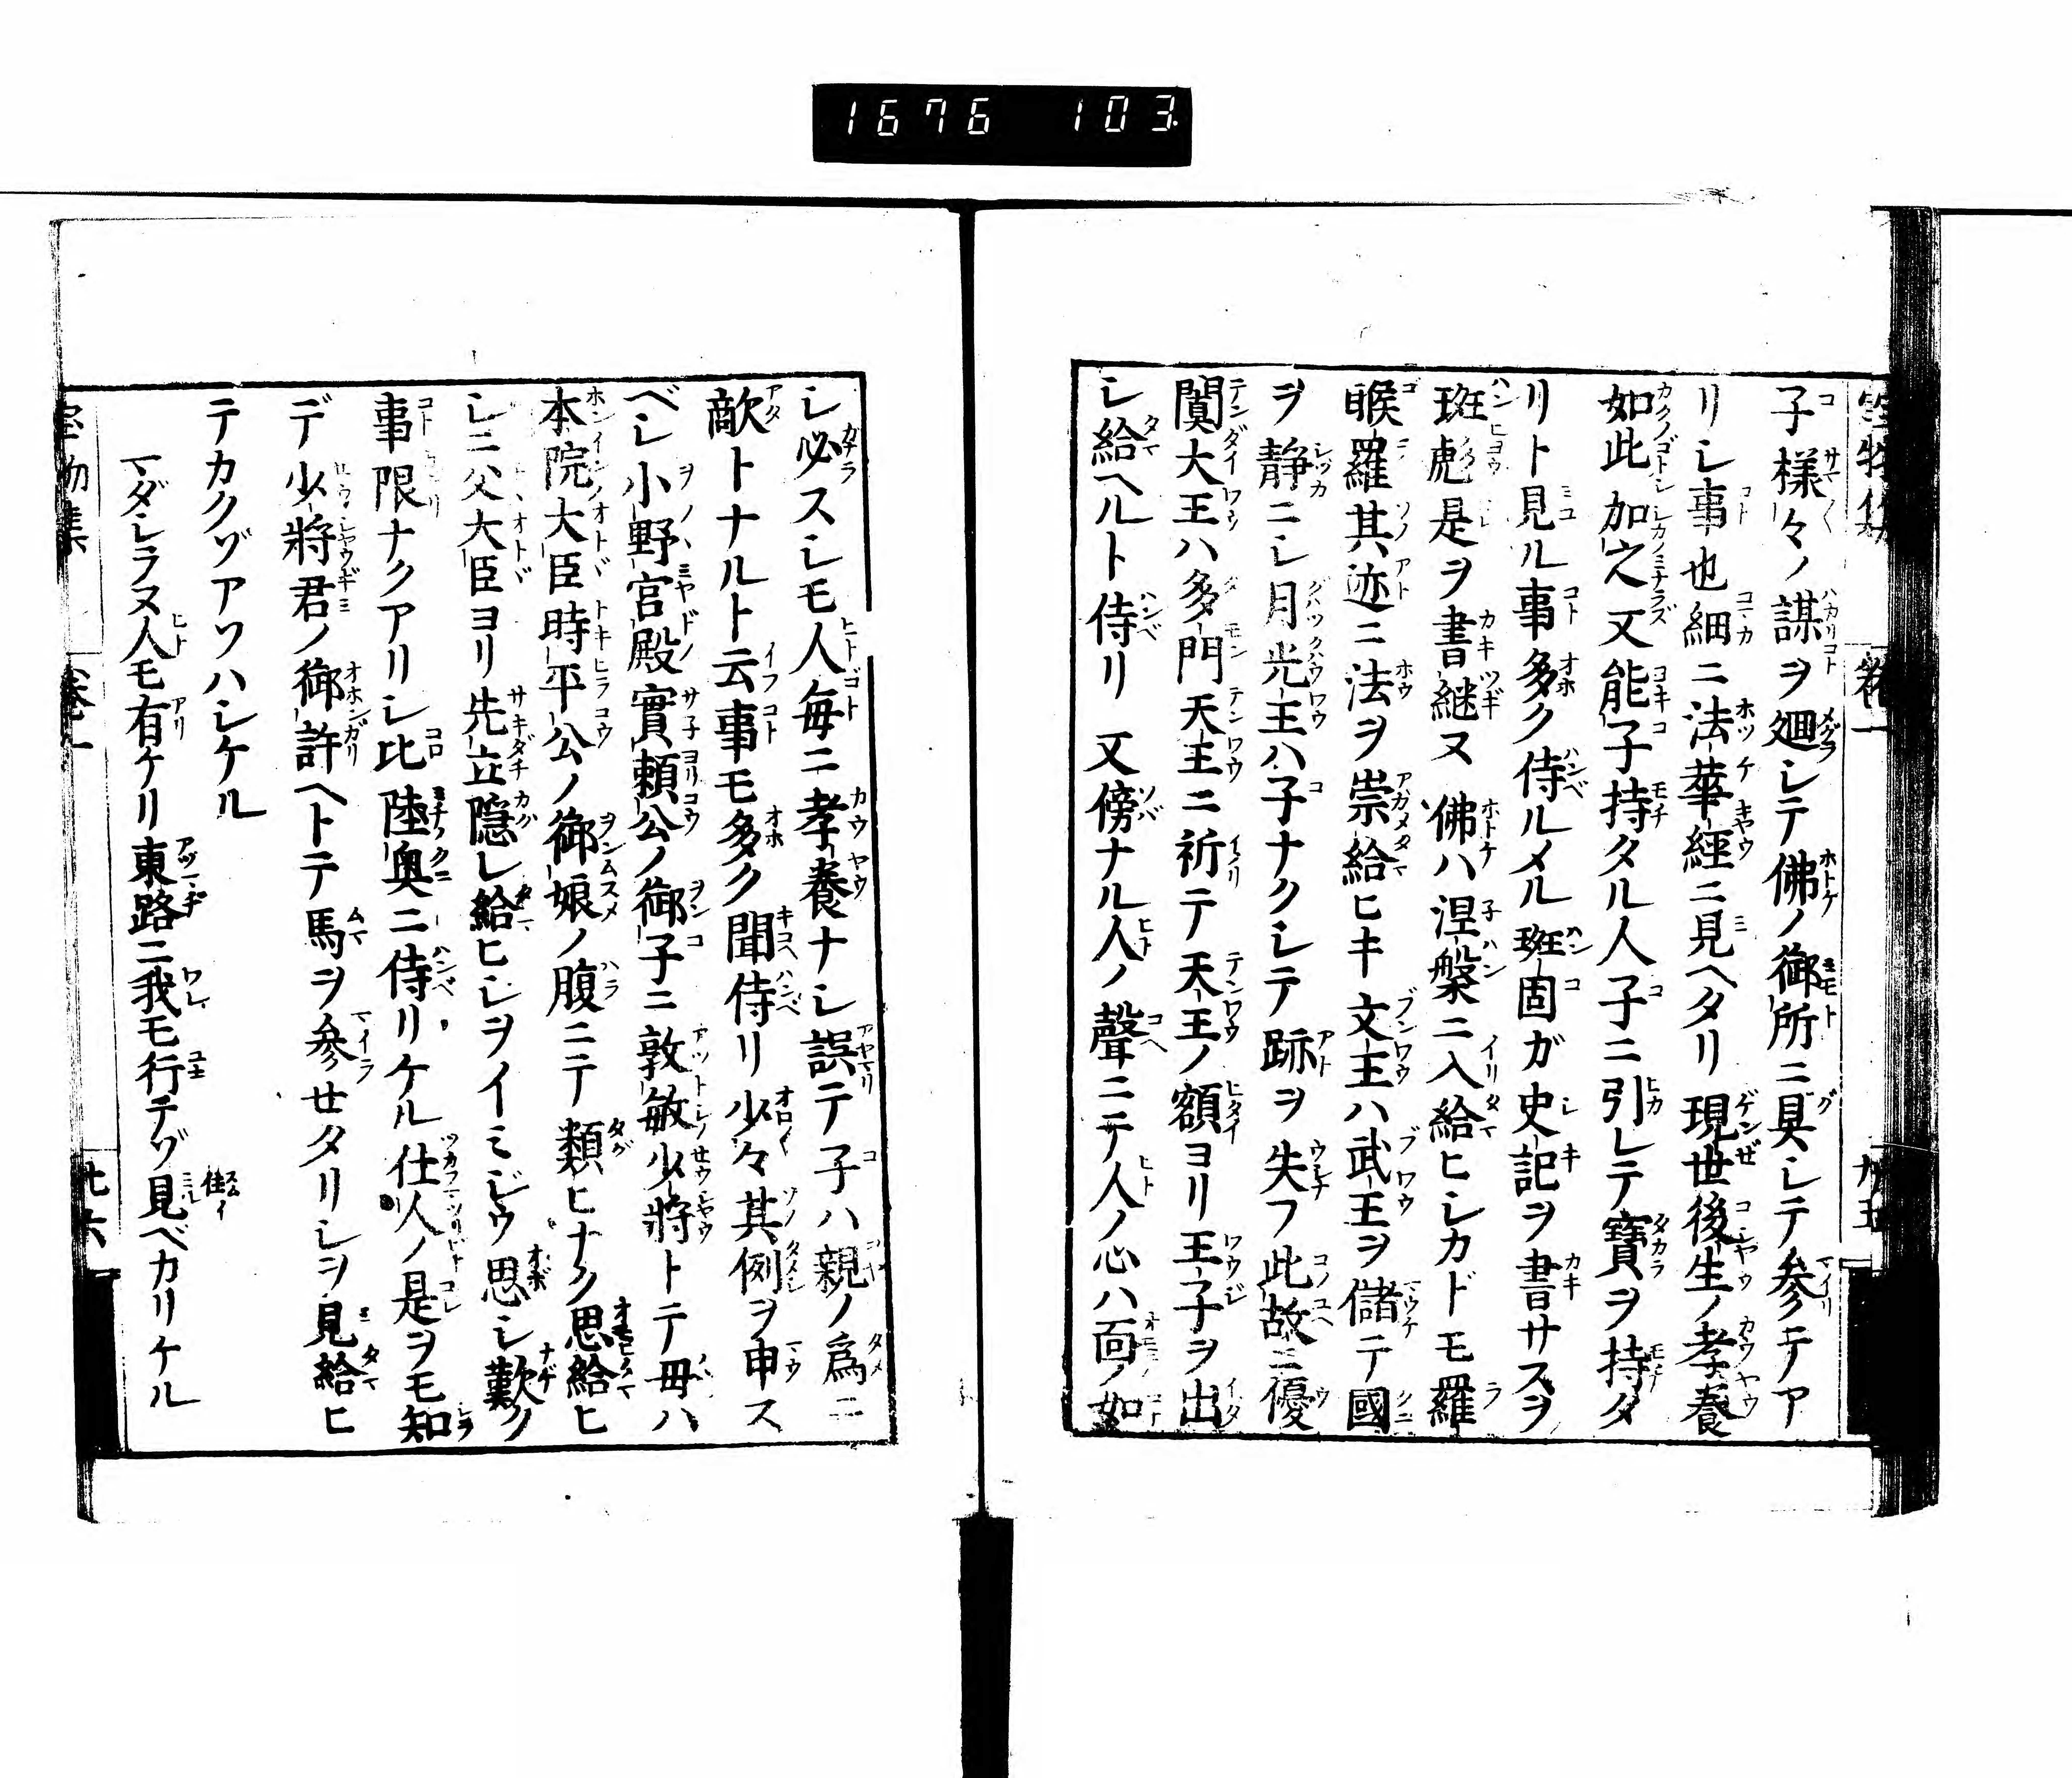 1676 103
子様々ノ謀ヲ廻シテ佛ノ御所ニ具シテ参テア
リシ事也細ニ法華經ニ見ヘタリ現世後生ノ孝養
如此加之又能子持タル人子ニ引レテ寶ヲ持タ
リト見ル事多ク侍ルメル班固ガ史記ヲ書サスヲ
班彪是ヲ書継ヌ佛ハ涅槃ニ入給ヒシカドモ羅
睺羅其迹ニ法ヲ崇給ヒキ文王ハ武王ヲ儲テ國
ヲ静ニシ月光王ハ子ナクシテ跡ヲ失フ此故ニ優
闐大王ハ多門天王ニ祈テ天王ノ額ヨリ王子ヲ出
シ給ヘルト侍リ又傍ナル人ノ聲ニテ人ノ心ハ面ノ如
シ必スシモ人毎ニ孝養ナシ誤テ子ハ親ノ爲ニ
敵トナルト云事モ多ク聞侍リ少々其例ヲ申ス
ベシ小野宮殿實頼公ノ御子ニ敦敏少將トテ母ハ
本院大臣時平公ノ御娘ノ腹ニテ類ヒナク思給ヒ
シニ父大臣ヨリ先立隠レ給ヒシヲイミジウ思シ歎ク
事限ナクアリシ比陸奥ニ侍リケル仕人ノ是ヲモ知
デ少將君ノ御許ヘトテ馬ヲ参セタリシヲ見給ヒ
テカクゾアソハシケル
マダシラヌ人モ有ケリ東路ニ我モ行テゾ見ベカリケル
住イ
寳物集 巻一 九六